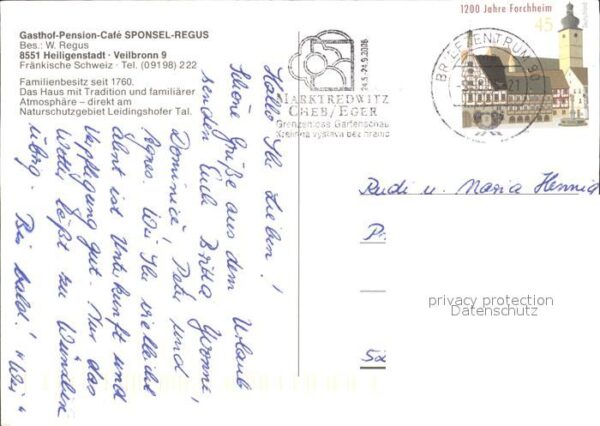 Gasthof-Pension-Café SPONSEL-REGUS
Bes.: W. Regus
8551 Heiligenstadt · Veilbronn 9
Fränkische Schweiz · Tel. (09198) 222
Familienbesitz seit 1760.
Das Haus mit Tradition und familiärer
Atmosphäre – direkt am
Naturschutzgebiet Leidingshofer Tal.
24.5.-24.9.2006
MARKTREDWITZ
CHEB/EGER
Grenzenlose Gartenschau
Krajinná výstava bez hranic
BRIEFZENTRUM 90
1200 Jahre Forchheim
45
Hallo Ihr Lieben!
Schöne Grüße aus dem Urlaub
senden Euch Britta, Yvonne,
Dominic, Peter und
Agnes. Wie Ihr vielleicht
ahnt ist Unterkunft und
Verpflegung gut. Nur das
Wetter läßt zu Wünschen
übrig. Bis bald!
Rudi u. Maria Hennig
privacy protection
Datenschutz